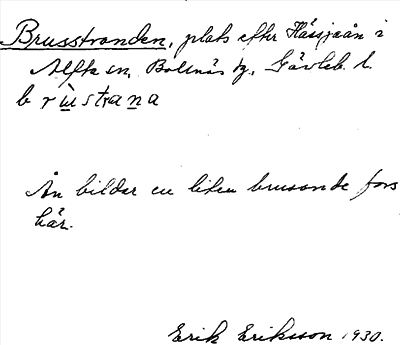 Brusstranden, plats efter Hässjaån i
Alfta sn, Bollnäs tg, Gävleb. l.
brùstrana
Ån bildar en liten brusande fors
här.
Erik Eriksson 1930.